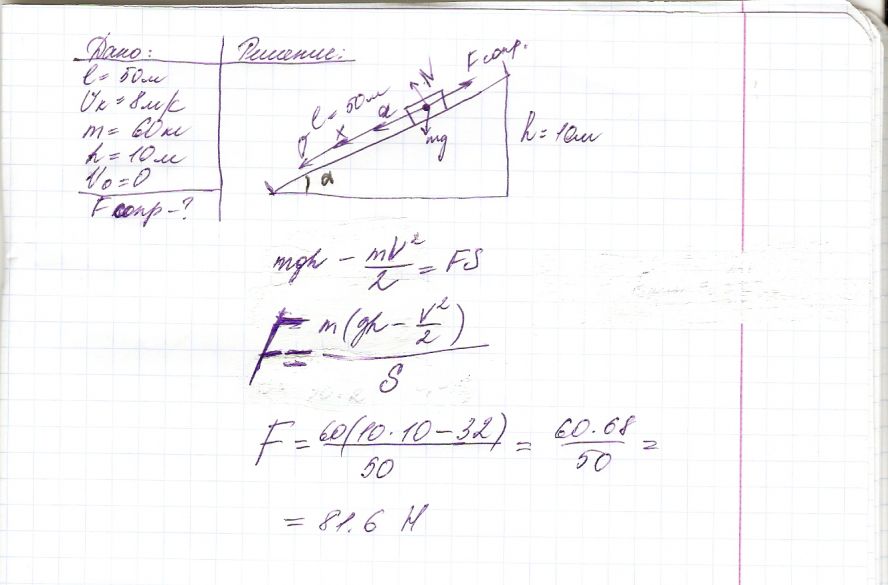 Дано:
l = 50м
Vк = 8м/с
m = 60кг
h = 10м
V₀ = 0
Fсопр - ?
Решение:
Fсопр.
N
l = 50м
a
x
mg
h = 10м
α
mgh - mV²/2 = FS
F = m(gh - V²/2)/S
F = 60(10·10-32)/50 = 60·68/50 =
= 81.6 Н